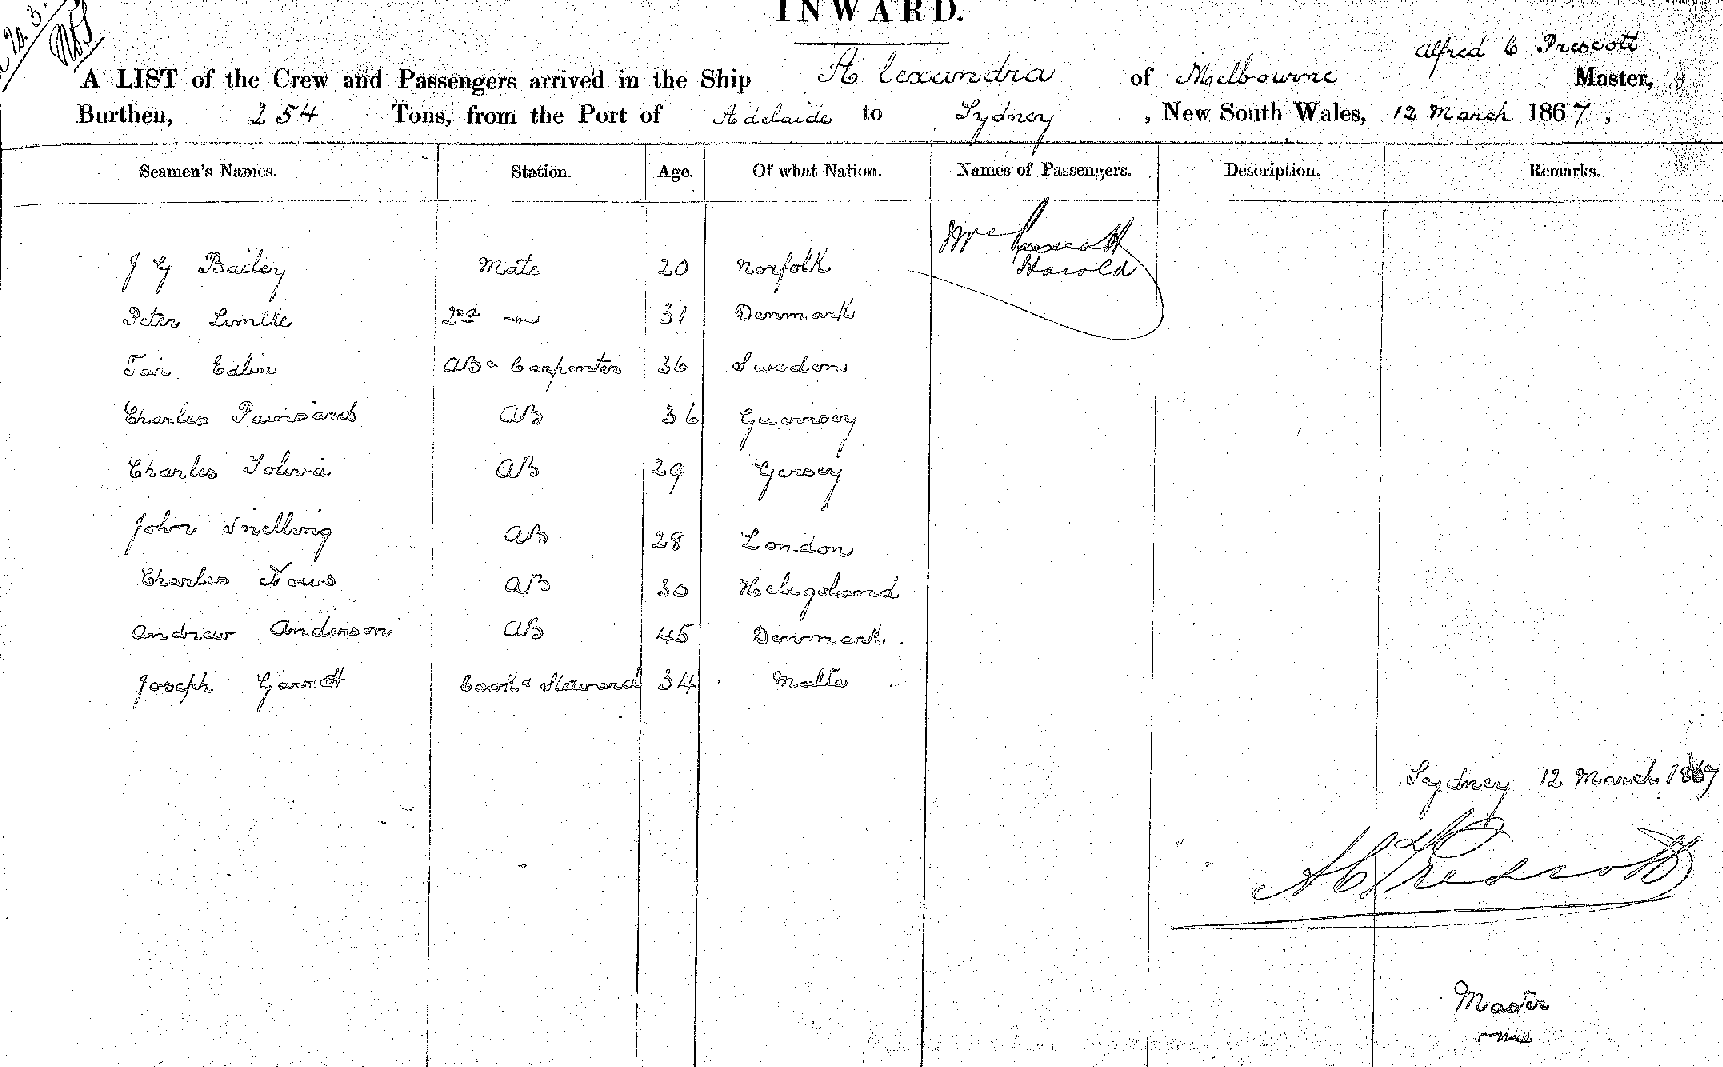 INWARD.
Alfred C Prescott
A LIST of the Crew and Passengers arrived in the Ship Alexandra of Melbourne Master,
Burthen, 254 Tons, from the Port of Adelaide to Sydney, New South Wales, 12 March 1867,
Seamen's Names. Station. Age. Of what Nation. Names of Passengers. Description. Remarks.
Mrs Prescott
J G Bailey Mate 20 Norfolk Harold
Peter 2nd 31 Denmark
Edlin AB & Carpenter 36 Sweden
Charles AB 36 Guernsey
Charles AB 29 Gersey
John Snelling AB 28 London
Charles AB 30 Heligoland
Andrew Anderson AB 45 Denmark
Joseph Garrett Cook & Steward 34 Malta
Sydney 12 March 1867
A C Prescott
Master